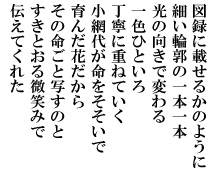 図録に載せるかのように
細い輪郭の一本一本
光の向きで変わる
一色ひといろ
丁寧に重ねていく
小網代が命をそそいで
育んだ花だから
その命ごと写すのと
すきとおる微笑みで
伝えてくれた